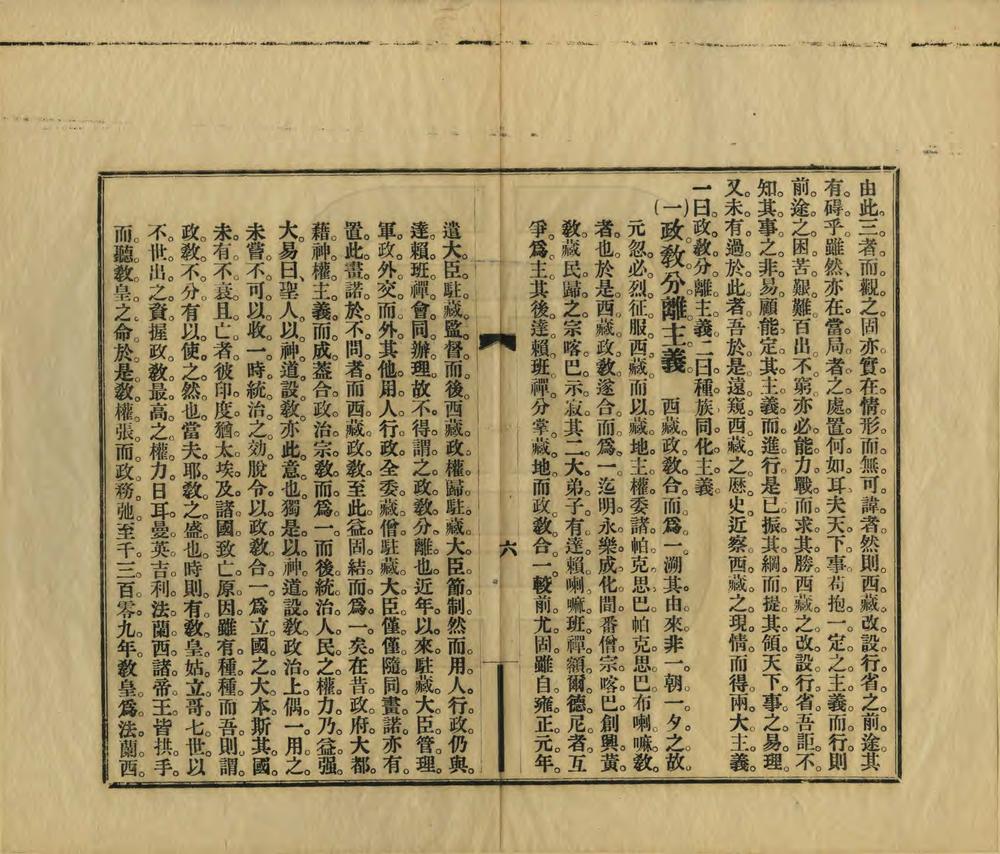 由此三者而觀之固亦實在情形而無可諱者然則西藏改設行省之前途其
有碍乎雖然亦在當局者之處置何如耳夫天下事苟抱一定之主義而行則
前途之困苦艱難百出不窮亦必能力戰而求其勝西藏之改設行省吾詎不
知其事之非易顧能定其主義而進行是已振其綱而提其領天下事之易理
又未有過於此者吾於是遠窺西藏之歷史近察西藏之現情而得兩大主義
一曰政敎分離主義二曰種族同化主義
(一)政敎分離主義　西藏政敎合而爲一溯其由來非一朝一夕之故
元忽必烈征服西藏而以藏地主權委諸帕克思巴帕克思巴布喇嘛敎
者也於是西藏政敎遂合而爲一迄明永樂成化間番僧宗喀巴創興黃
敎藏民歸之宗喀巴示寂其二大弟子有達賴喇嘛班禪額爾德尼者互
爭爲主其後達賴班禪分掌藏地而政敎合一較前尤固雖自雍正元年
六
遣大臣駐藏監督而後西藏政權歸駐藏大臣節制然而用人行政仍與
達賴班禪會同辦理故不得謂之政敎分離也近年以來駐藏大臣管理
軍政外交而外其他用人行政全委藏僧駐藏大臣僅僅隨同畫諾亦有
置此畫諾於不問者而西藏政敎至此益固結而爲一矣在昔政府大都
藉神權主義而成蓋合政治宗敎而爲一而後統治人民之權力乃益强
大易曰聖人以神道設敎亦此意也獨是以神道設敎政治上偶一用之
未嘗不可以收一時統治之効脫令以政敎合一爲立國之大本斯其國
未有不衰且亡者彼印度猶太埃及諸國致亡原因雖有種種而吾則謂
政敎不分有以使之然也當夫耶敎之盛也時則有敎皇姑立哥七世以
不世出之資握政敎最高之權力日耳曼英吉利法蘭西諸帝王皆拱手
而聽敎皇之命於是敎權張而政務弛至千三百零九年敎皇爲法蘭西